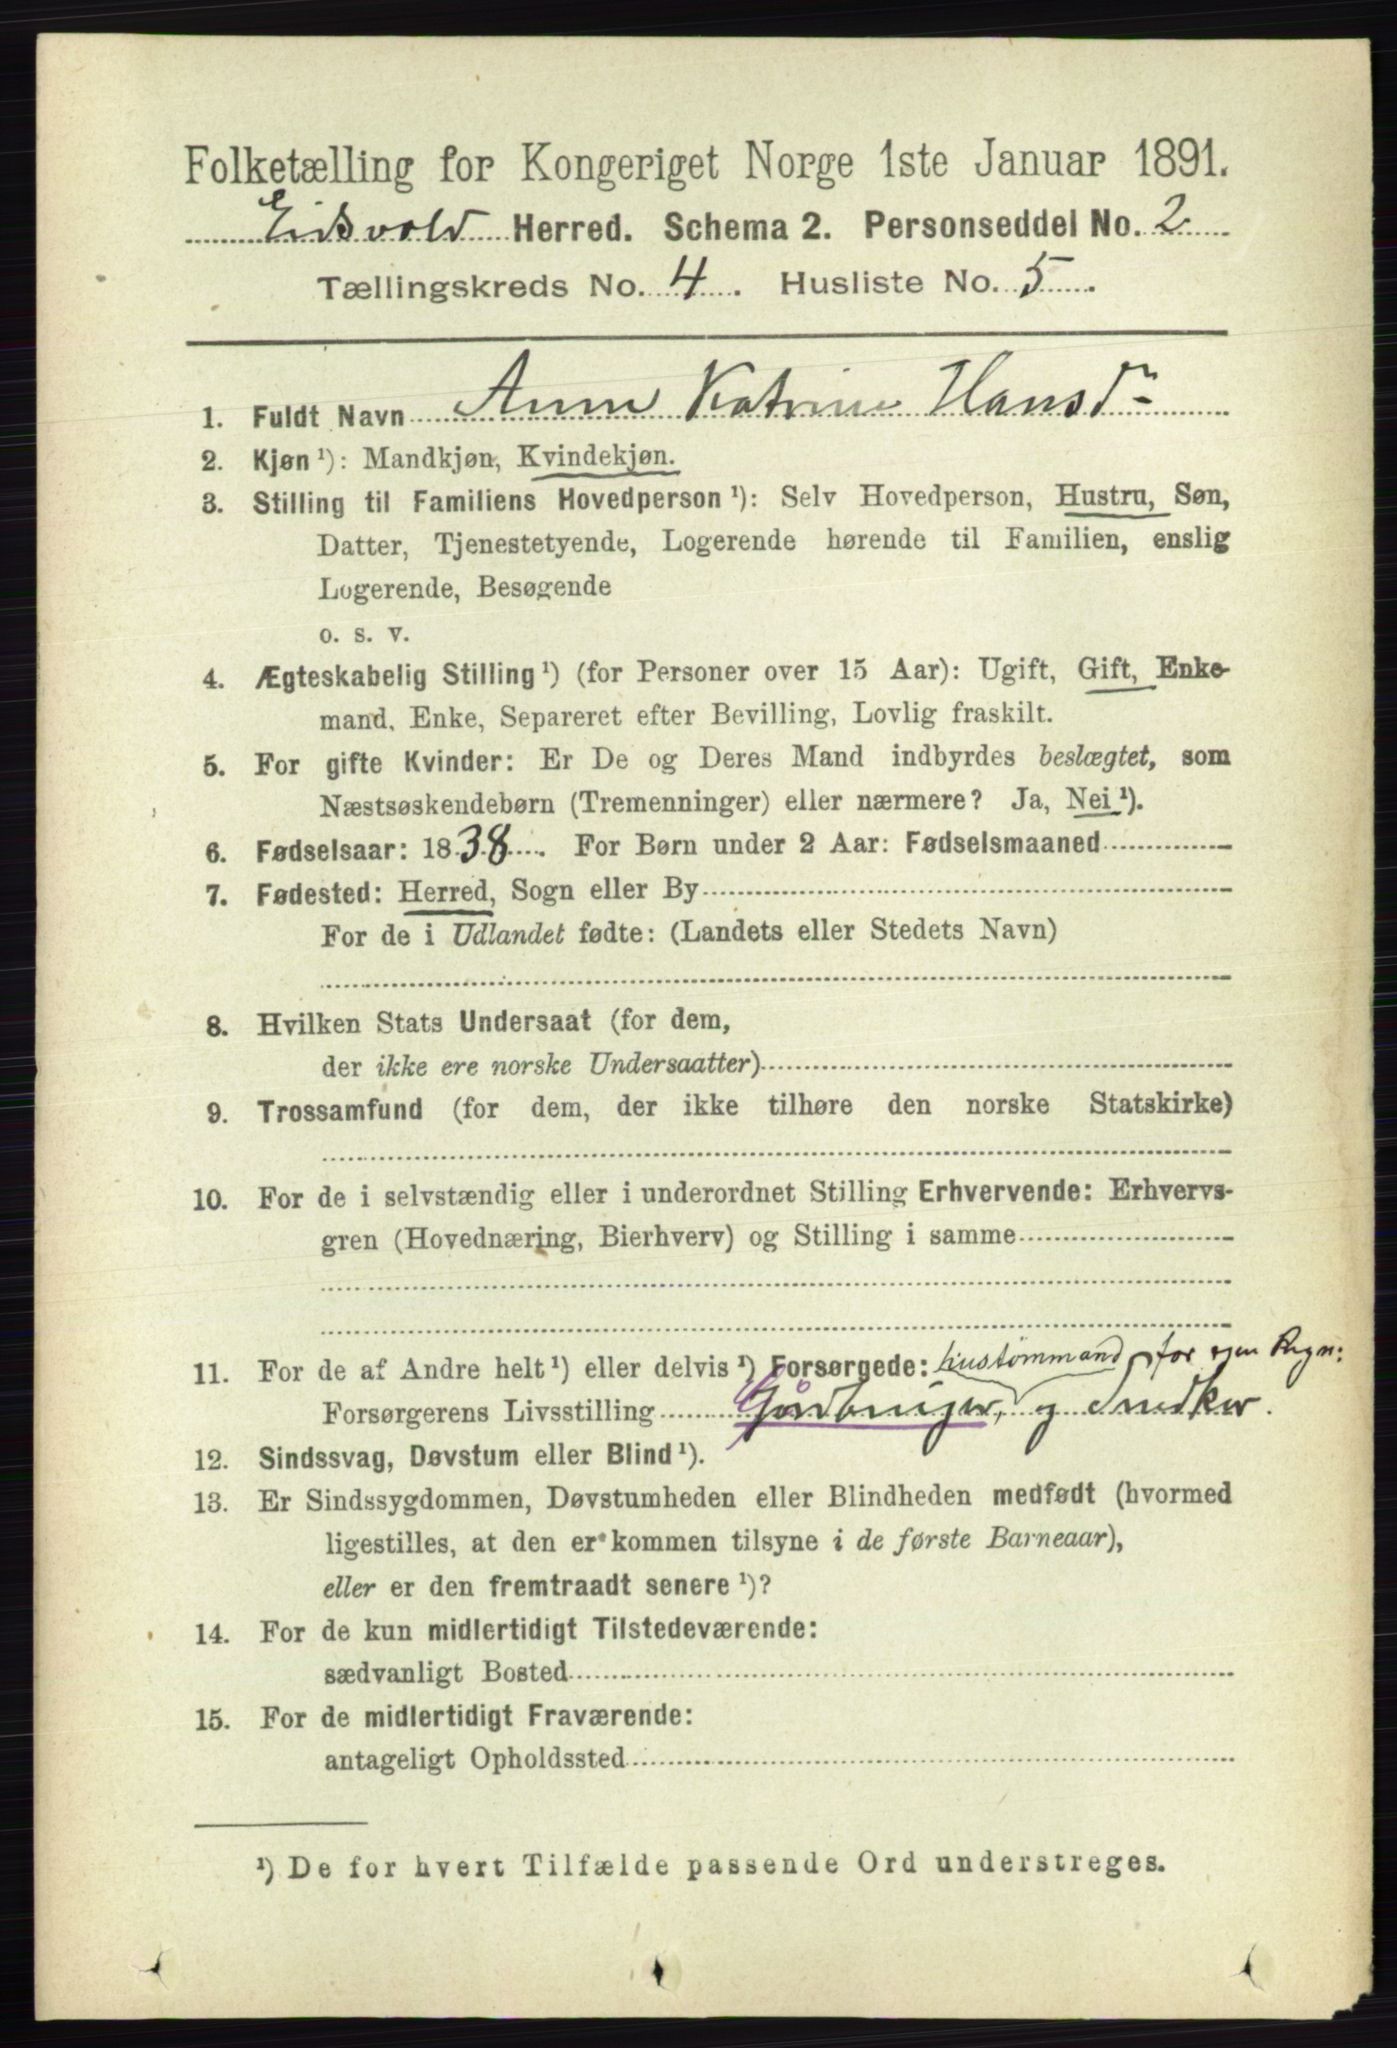 Folketælling for Kongeriget Norge 1ste Januar 1891.
Eidsvold Herred. Schema 2. Personseddel No. 2
Tællingskreds No. 4. Husliste No. 5.
1. Fuldt Navn Anne Katrine Hansdr
2. Kjøn ¹): Mandkjøn, Kvindekjøn.
3. Stilling til Familiens Hovedperson ¹): Selv Hovedperson, Hustru, Søn,
Datter, Tjenestetyende, Logerende hørende til Familien, enslig
Logerende, Besøgende
o. s. v.
4. Ægteskabelig Stilling ¹) (for Personer over 15 Aar): Ugift, Gift, Enke-
mand, Enke, Separeret efter Bevilling, Lovlig fraskilt.
5. For gifte Kvinder: Er De og Deres Mand indbyrdes beslægtet, som
Næstsøskendebørn (Tremenninger) eller nærmere? Ja, Nei ¹).
6. Fødselsaar: 1838. For Børn under 2 Aar: Fødselsmaaned
7. Fødested: Herred, Sogn eller By
For de i Udlandet fødte: (Landets eller Stedets Navn)
8. Hvilken Stats Undersaat (for dem,
der ikke ere norske Undersaatter)
9. Trossamfund (for dem, der ikke tilhøre den norske Statskirke)
10. For de i selvstændig eller i underordnet Stilling Erhvervende: Erhvervs-
gren (Hovednæring, Bierhverv) og Stilling i samme
11. For de af Andre helt ¹) eller delvis ¹) Forsørgede: hustømmand for egen Regn:
Forsørgerens Livsstilling Gårdbruger, og Snedker.
12. Sindssvag, Døvstum eller Blind ¹).
13. Er Sindssygdommen, Døvstumheden eller Blindheden medfødt (hvormed
ligestilles, at den er kommen tilsyne i de første Barneaar),
eller er den fremtraadt senere ¹)?
14. For de kun midlertidigt Tilstedeværende:
sædvanligt Bosted
15. For de midlertidigt Fraværende:
antageligt Opholdssted
¹) De for hvert Tilfælde passende Ord understreges.